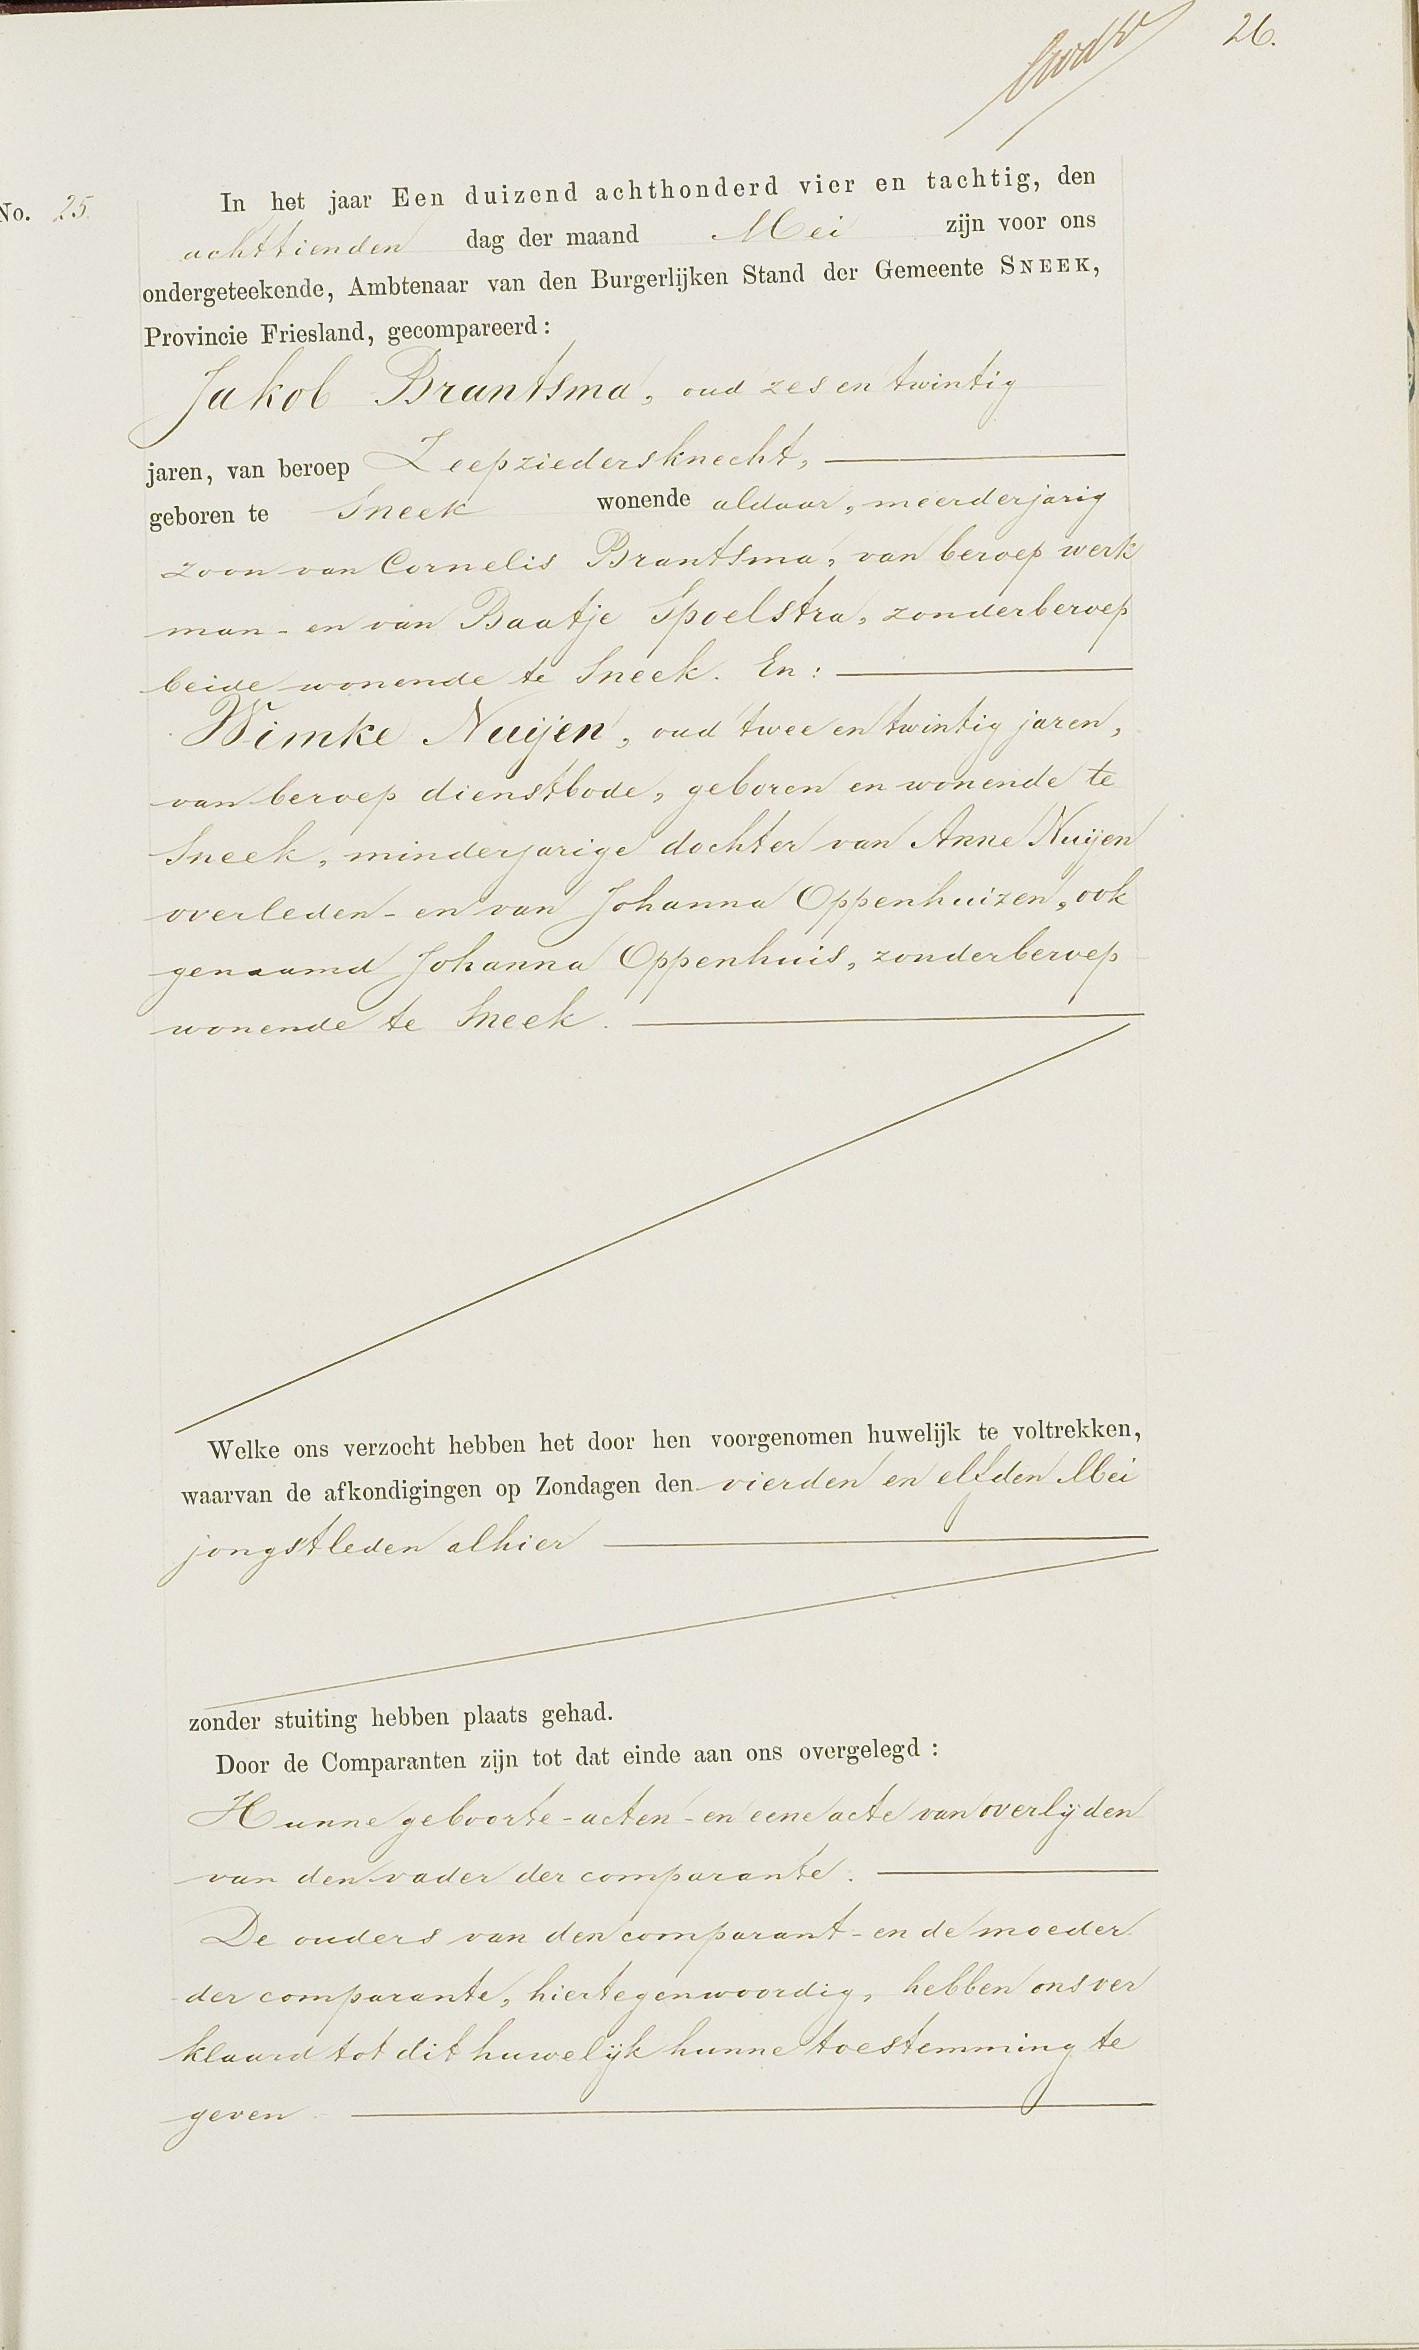 26.
No. 25.
In het jaar Een duizend achthonderd vier en tachtig, den
achttienden dag der maand Mei zijn voor ons
ondergeteekende, Ambtenaar van den Burgerlijken Stand der Gemeente SNEEK,
Provincie Friesland, gecompareerd:
Jakob Brantsma, oud zes en twintig
jaren, van beroep Zeepziedersknecht,
geboren te Sneek wonende aldaar, meerderjarig
zoon van Cornelis Brantsma, van beroep werk
man - en van Baatje Spoelstra, zonder beroep
beide wonende te Sneek. En:
Wimke Nuijen, oud twee en twintig jaren,
van beroep dienstbode, geboren en wonende te
Sneek, minderjarige dochter van Anne Nuijen
overleden - en van Johanna Oppenhuizen, ook
genaamd Johanna Oppenhuis, zonder beroep
wonende te Sneek.
Welke ons verzocht hebben het door hen voorgenomen huwelijk te voltrekken,
waarvan de afkondigingen op Zondagen den vierden en elfden Mei
jongstleden alhier
zonder stuiting hebben plaats gehad.
Door de Comparanten zijn tot dat einde aan ons overgelegd:
Hunne geboorte-acten - en eene acte van overlijden
van den vader der comparante.
De ouders van den comparant - en de moeder
der comparante, hiertegenwoordig, hebben ons ver
klaard tot dit huwelijk hunne toestemming te
geven.